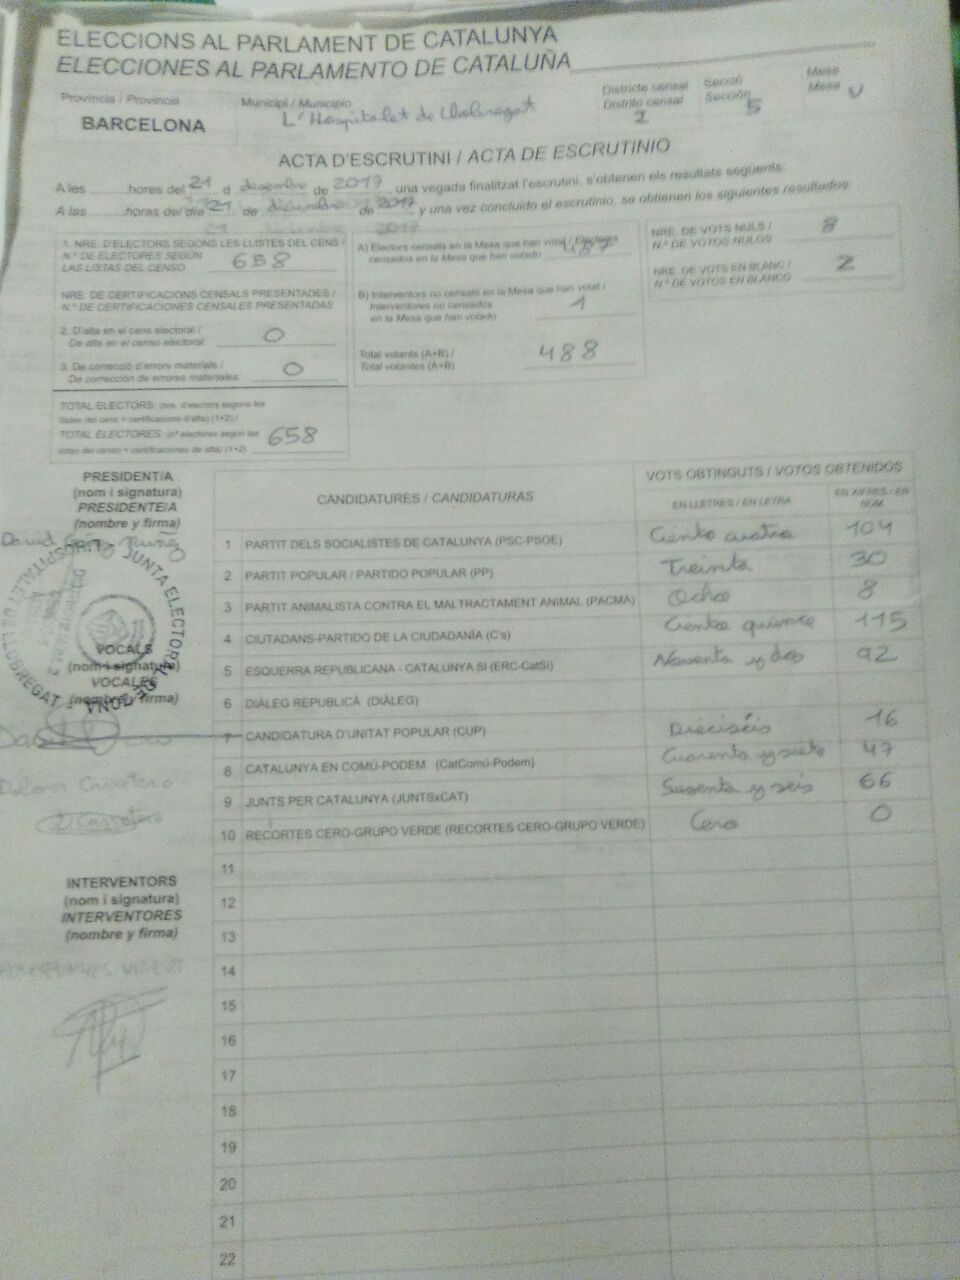 ELECCIONS AL PARLAMENT DE CATALUNYA
ELECCIONES AL PARLAMENTO DE CATALUÑA
Província / Provincia
BARCELONA
Municipi / Municipio
L'Hospitalet de Llobregat
Districte censal
Distrito censal
2
Secció
Sección
5
Mesa
Mesa
U
ACTA D'ESCRUTINI / ACTA DE ESCRUTINIO
A les hores del 21 d desembre de 2017, una vegada finalitzat l'escrutini, s'obtenen els resultats següents:
A las horas del día 21 de diciembre de 2017 y una vez concluido el escrutinio, se obtienen los siguientes resultados:
1. NRE. D'ELECTORS SEGONS LES LLISTES DEL CENS /
N.º DE ELECTORES SEGÚN
LAS LISTAS DEL CENSO 658
NRE. DE CERTIFICACIONS CENSALS PRESENTADES /
N.º DE CERTIFICACIONES CENSALES PRESENTADAS
2. D'alta en el cens electoral /
De alta en el censo electoral 0
3. De correcció d'errors materials /
De corrección de errores materiales 0
TOTAL ELECTORS: (nre. d'electors segons les
llistes del cens + certificacions d'alta) (1+2) /
TOTAL ELECTORES: (nº electores según las
listas del censo + certificaciones de alta) (1+2) 658
A) Electors censats en la Mesa que han votat / Electores
censados en la Mesa que han votado 487
B) Interventors no censats en la Mesa que han votat /
Interventores no censados
en la Mesa que han votado 1
Total votants (A+B) /
Total votantes (A+B) 488
NRE. DE VOTS NULS /
N.º DE VOTOS NULOS 8
NRE. DE VOTS EN BLANC /
N.º DE VOTOS EN BLANCO 2
PRESIDENT/A
(nom i signatura)
PRESIDENTE/A
(nombre y firma)
JUNTA ELECTORAL DE ZONA
L'HOSPITALET DE LLOBREGAT
VOCALS
(nom i signatura)
VOCALES
(nombre y firma)
Dolores Carretero
INTERVENTORS
(nom i signatura)
INTERVENTORES
(nombre y firma)
CANDIDATURES / CANDIDATURAS
VOTS OBTINGUTS / VOTOS OBTENIDOS
EN LLETRES / EN LETRA
EN XIFRES / EN NÚM.
1 PARTIT DELS SOCIALISTES DE CATALUNYA (PSC-PSOE) Ciento cuatro 104
2 PARTIT POPULAR / PARTIDO POPULAR (PP) Treinta 30
3 PARTIT ANIMALISTA CONTRA EL MALTRACTAMENT ANIMAL (PACMA) Ocho 8
4 CIUTADANS-PARTIDO DE LA CIUDADANÍA (C's) Ciento quince 115
5 ESQUERRA REPUBLICANA - CATALUNYA SÍ (ERC-CatSí) Noventa y dos 92
6 DIÀLEG REPUBLICÀ (DIÀLEG)
7 CANDIDATURA D'UNITAT POPULAR (CUP) Dieciséis 16
8 CATALUNYA EN COMÚ-PODEM (CatComú-Podem) Cuarenta y siete 47
9 JUNTS PER CATALUNYA (JUNTSxCAT) Susenta y seis 66
10 RECORTES CERO-GRUPO VERDE (RECORTES CERO-GRUPO VERDE) Cero 0
11
12
13
14
15
16
17
18
19
20
21
22